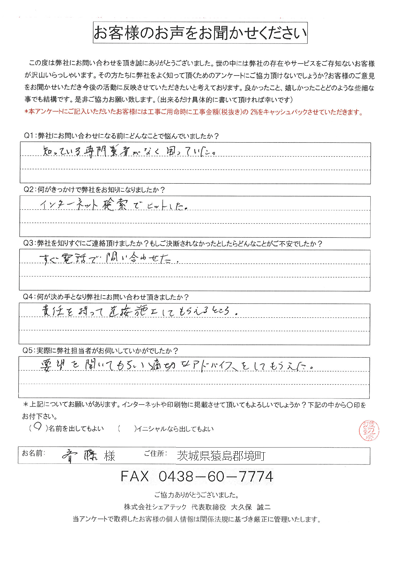 お客様のお声をお聞かせください
この度は弊社にお問い合わせを頂き誠にありがとうございました。世の中には弊社の存在やサービスをご存知ないお客様
が沢山いらっしゃいます。その方たちに弊社をよく知って頂くためのアンケートにご協力頂けないでしょうか?お客様のご意見
をお聞かせいただき今後の活動に反映させていただきたいと考えております。良かったこと、嬉しかったことどのような些細な
事でも結構です。是非ご協力お願い致します。(出来るだけ具体的に書いて頂ければ幸いです)
*本アンケートにご記入いただいたお客様には工事ご用命時に工事金額(税抜き)の2%をキャッシュバックさせていただきます。
Q1:弊社にお問い合わせになる前にどんなことで悩んでいましたか?
知っている専門業者がなく困っていた。
Q2:何がきっかけで弊社をお知りになりましたか?
インターネット検索でヒットした。
Q3:弊社を知りすぐにご連絡頂けましたか?もしご決断されなかったとしたらどんなことがご不安でしたか?
すぐ電話で問い合わせた。
Q4:何が決め手となり弊社にお問い合わせ頂きましたか?
責任を持って直接施工してもらえるところ。
Q5:実際に弊社担当者がお伺いしていかがでしたか?
要望を聞いてもらい適切なアドバイスをしてもらえた。
*上記についてお願いがあります。インターネットや印刷物に掲載させて頂いてもよろしいでしょうか?下記の中から〇印を
お付下さい。
(〇)名前を出してもよい ( )イニシャルなら出してもよい
お名前: 齊藤 様 ご住所: 茨城県猿島郡境町
FAX 0438-60-7774
ご協力ありがとうございました。
株式会社シェアテック 代表取締役 大久保 誠二
当アンケートで取得したお客様の個人情報は関係法規に基づき厳正に管理いたします。